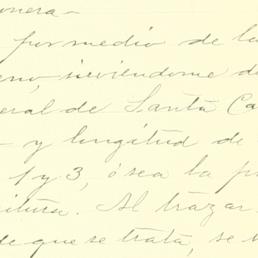 onera-
por medio de la
eno, sirviéndome de
eral de Santa Ca
- y longitud de
1 y 3, ó sea la p
itura. Al trazar
de que se trata, se